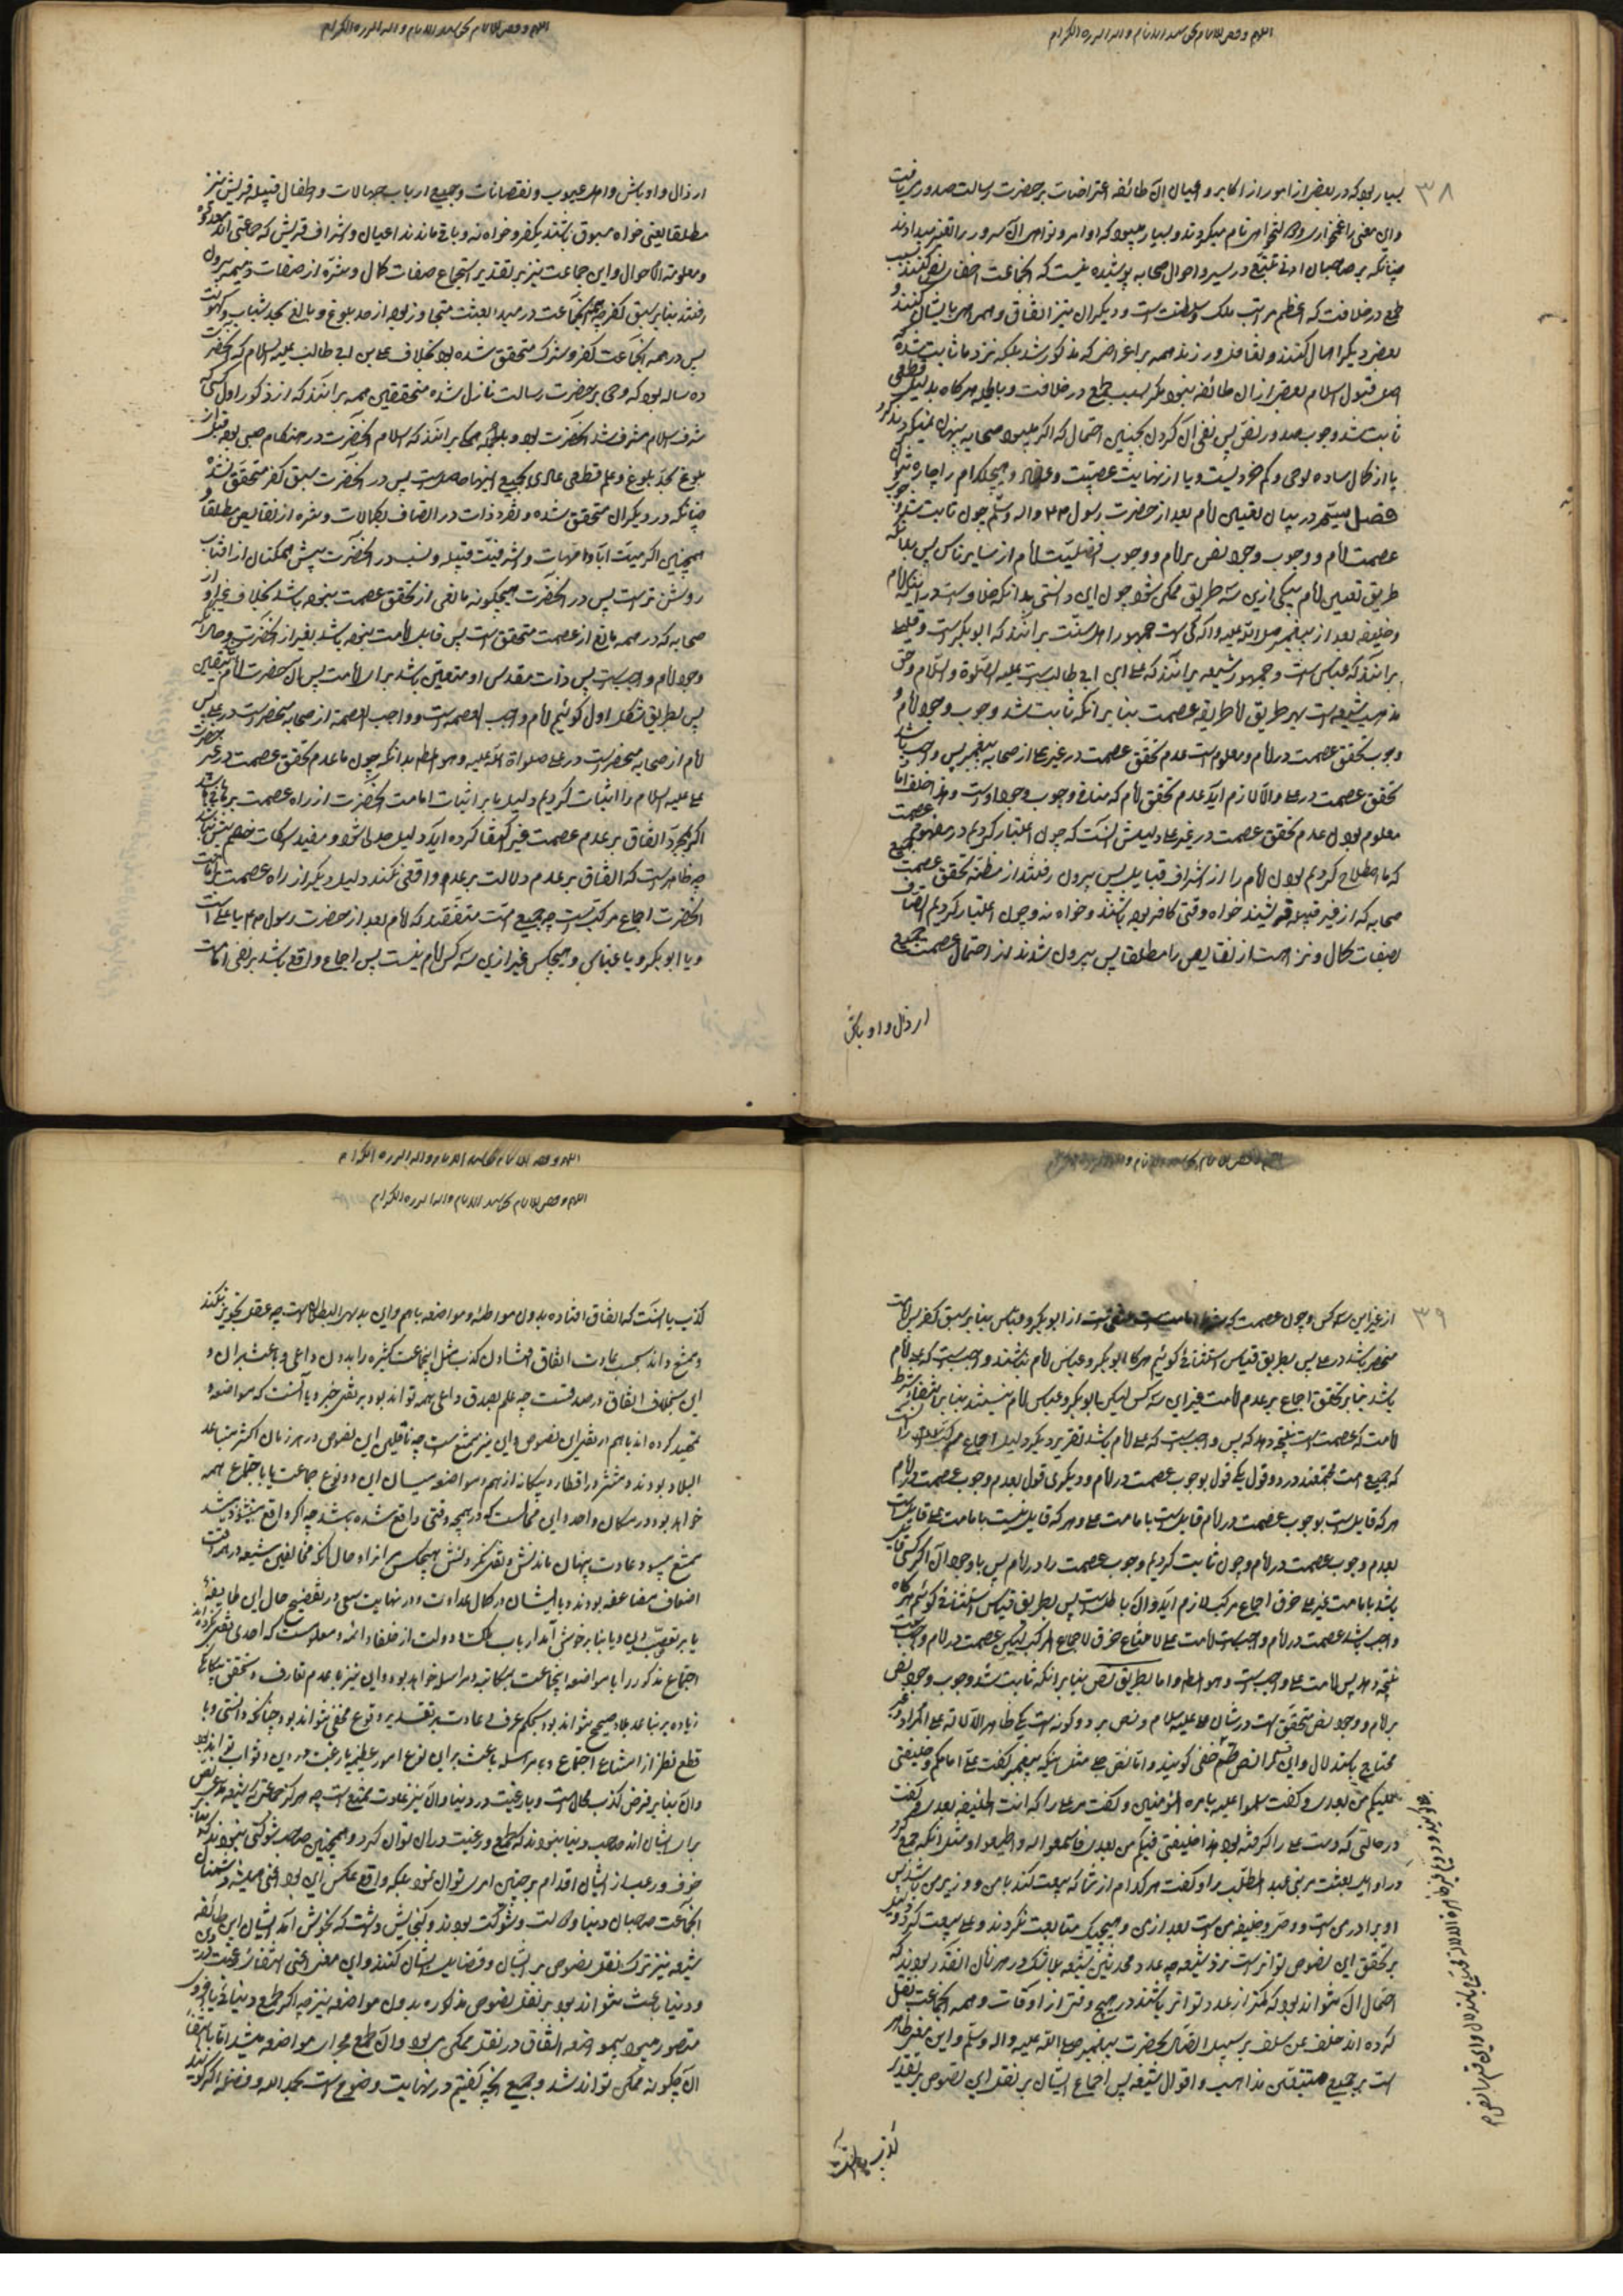 ۳۸
بسیار بود که در بعضی از امور از اکابر و اعیان آن طائفه اعتراضات بر حضرت رسالت صدور می یافت
چنانکه بر صاحبان ادنی تتبع در سیر و احوال صحابه پوشیده نیست که انجماعت
طمع در خلافت که اعظم مراتب ملک و سلطنت است و دیگران نیز اتفاق و همراهی با ایشان کنند و
بعضی دیگر اهمال کنند و تغافل ورزند همه بر اغراض که مذکور شد بلکه نزد ما ثابت شده که
اصل قبول اسلام بعضی از آن طائفه نبود مگر بسبب طمع در خلافت و بالجمله هرگاه بدلیل قطعی
ثابت شد وجوب صدور نص پس نفی آن کردن بچنین احتمال که اگر میبود صحابه پنهان نمیکردند
یا از کمال ساده لوحی و کم خردیست و یا از نهایت عصبیت و هیچکدام را چاره نتوان
فصل سیم در بیان تعیین امام بعد از حضرت رسول و اله و سلم چون ثابت شد وجوب
عصمت امام و وجوب وجود نص بر امام و وجوب افضلیت امام از سایر ناس پس بدانکه
طریق تعیین امام بیکی ازین سه طریق ممکن شود چون این دانستی بدانکه خلاف است در اینکه امام
و خلیفه بعد از پیغمبر صلی الله علیه و اله کی است جمهور اهل سنت برانند که ابو بکر است و قلیلی
برانند که عباس است و جمهور شیعه برانند که علی ابن ابی طالب است علیه الصلوة و السلام و حق
مذهب شیعه است بهر طریق اما طریقه عصمت بنا برانکه ثابت شد وجوب وجود امام و
وجوب تحقق عصمت در امام و معلوم است عدم تحقق عصمت در غیر علی از صحابه پیغمبر پس واجب باشد
تحقق عصمت در علی والا لازم آید عدم تحقق امام که منافی وجوب وجود اوست و هذا خلف اما
معلوم بودن عدم تحقق عصمت در غیر علی دلیلش آنست که چون اعتبار کردیم در مفهوم عصمت
که ما اصطلاح کردیم بودن امام را از اشراف قبایل پس بیرون رفتند از مظنه تحقق عصمت جمیع
صحابه که از غیر قبیله قریشند خواه وقتی کافر بوده باشند و خواه نه و چون اعتبار کردیم اتصاف
بصفات کمال و نزاهت از نقایص را مطلقا پس بیرون شدند از احتمال عصمت جمیع
ارذال و اوباش
ارذال و اوباش و اهل عیوب و نقصانات و جمیع ارباب جهالات و اطفال قبیله قریش نیز
مطلقا یعنی خواه مسبوق باشند بکفر و خواه نه و باقی ماندند اعیان و اشراف قریش که جماعتی اند معدود
و معلومة الاحوال و این جماعت نیز بر تقدیر استجماع صفات کمال و منزه از صفات ذمیمه بیرون
رفتند بنا بر سبق کفر چه سن انجماعت در مبدا بعثت متجاوز بود از حد بلوغ و بالغ بحد شباب و کهولت
پس در همه انجماعت کفر و شرک متحقق شده بود بخلاف علی بن ابی طالب علیه السلام که انحضرت
ده ساله بود که وحی بر حضرت رسالت نازل شده متحققین همه برانند که از ذکور اول کسی که
شرف اسلام مشرف شد انحضرت بود و بالجمله همگی برانند که اسلام انحضرت در هنگام صبی بوده قبل از
چنانکه در دیگران متحقق شده و تفرد ذات در اتصاف بکمالات و منزه از نقایص مطلقا و
همچنین اکرمیت آبا و امهات و اشرفیت قبیله و نسب در انحضرت پیش همگنان از افتاب
روشن تر است پس در انحضرت هیچگونه مانعی از تحقق عصمت نبوده باشد بخلاف غیر او از
صحابه که در همه مانع از عصمت متحقق است پس قابل امامت نبوده باشد بغیر از انحضرت و حال آنکه
وجود امام واجب است پس ذات مقدس او متعین باشد برای امامت پس آن حضرت امام است بیقین
پس بطریق شکل اول گوئیم امام واجب العصمه است و واجب العصمة از صحابه منحصر است در علی پس
امام از صحابه منحصر است در علی صلواة الله علیه و هو المط بدانکه چون ما عدم تحقق عصمت در غیر حضرت
علی علیه السلام را اثبات کردیم دلیل ما بر اثبات امامت انحضرت از راه عصمت برهانی باشد
اگر بمجرد اتفاق بر عدم عصمت غیر اکتفا کرده آید دلیل جدلی شود و مفید اسکات خصم بیش نباشد
چه ظاهر است که اتفاق بر عدم دلالت بر عدم واقعی نکند دلیل دیگر از راه عصمت بر امامت
انحضرت اجماع مرکبست چه جمیع امت متفقند که امام بعد از حضرت رسول یا علی است
و یا ابو بکر و یا عباس و هیچکس غیر ازین سه کس امام نیست پس اجماع واقع باشد بر نفی امامت
۳۹
از غیر این سه کس و چون عصمت که شرط امامت است منتفی است از ابو بکر و عباس بنا بر سبق کفر پس امامت
منحصر باشد در علی پس بطریق قیاس استثنائی گوئیم هرگاه ابو بکر و عباس امام نباشند واجب است که علی امام
باشد بنا بر تحقق اجماع بر عدم امامت غیر این سه کس لیکن ابو بکر و عباس امام نیستند بنا بر انتفاء شرط
امامت که عصمت است نتیجه دهد که پس واجب است که علی امام باشد تقریر دیگر دلیل اجماع مرکب
که جمیع امت مجتمعند در دو قول یکی قول بوجوب عصمت در امام و دیگری قول بعدم وجوب عصمت در امام
هر که قایل است بوجوب عصمت در امام قایل است بامامت علی و هر که قایل نیست بامامت علی قایل است
بعدم وجوب عصمت در امام و چون ثابت کردیم وجوب عصمت را در امام پس با وجود آن اگر کسی قایل
باشد بامامت غیر علی خرق اجماع مرکب لازم آید و آن باطل است پس بطریق قیاس استثنائی گوئیم هرگاه
واجب باشد عصمت در امام واجب است امامت علی لامتناع خرق الاجماع المرکب لیکن عصمت در امام واجب است
نتیجه دهد پس امامت علی واجب است و هو المط و اما بطریق نص بنا برانکه ثابت شد وجوب وجود نص
بر امام و وجود نص متحقق است در شان علی علیه السلام و نص بر دو گونه است یکی ظاهر الدلاله علی المراد غیر
محتاج باستدلال و این قسم را نص جلی گویند و اما نص جلی مثل اینکه پیغمبر گفت علی امامکم و خلیفتی
علیکم من بعدی و گفت سلموا علیه بامره المؤمنین و گفت مر علی را که انت الخلیفه بعدی و گفت
در حالتی که دست علی را گرفته بود هذا خلیفتی فیکم من بعدی فاسمعوا له و اطیعوا و مثل انکه جمع کرد
در اوایل بعثت مر بنی عبد المطلب را و گفت هر کدام از شما که بیعت کند با من و وزیر من باشد پس
او برادر من است و وصی و خلیفه من است بعد از من و هیچیک متابعت نکردند و علی بیعت کرد
بر تحقق این نصوص تواتر است نزد شیعه چه عدد محدثین شیعه بلا شک در هر زمان انقدر بودند که
احتمال آن نتواند بود که کمتر از عدد تواتر باشند در هیچ وقتی از اوقات و همه انجماعت نقل
کرده اند خلف عن سلف بر سبیل اتصال بحضرت پیغمبر صلی الله علیه و اله و سلم و این معنی ظاهر
است بر جمیع متتبعین مذاهب و اقوال شیعه پس اجماع ایشان بر نقل این نصوص بر تقدیر
کذب یا انست
کذب یا انست که اتفاق افتاده بدون مواطاه و مواضعه باهم و این بدیهی البطلان است چه عقل تجویز نکند
و ممتنع داند بحسب عادت اتفاق افتادن کذب مثل اینجماعت کثیره را بدون داعی و باعث بران و
این بخلاف اتفاق در صدقست چه علم بصدق داعی همه تواند بود بر نقل خبر و یا آنست که مواضعه
تمهید کرده اند باهم در نقل این نصوص و این نیز ممتنع است چه ناقلین این نصوص در هر زمان اکثر متباعد
البلاد بودند و منتشر در اقطار و بیگانه از هم و مواضعه میان این دو نوع جماعت یا باجتماع همه
خواهد بود در مکان واحد و این محالست که در هیچ وقتی واقع شده باشد چه اگر واقع میشد
ممتنع میبود عادت پنهان ماندنش و نقل نکردنش هیچکس مر انرا و حال آنکه مخالفین شیعه در هر وقت
اضعاف مضاعفه بودند و با ایشان در کمال عداوت و در نهایت سعی در تفضیح حال این طایفه
یا بر تعصب دین و یا بنا بر خوش آمد ارباب ملک و دولت از خلفا و ائمه و معلومست که احدی نقل نکرده
اجتماع مذکور را یا مواضعه اینجماعت بمکاتبه و مراسله خواهد بود و این نیز با عدم تعارف و تحقق بیگانگی
زیاده بر تباعد بلاد صحیح نتواند بود بحکم عرف و عادت بر تقدیر وقوع مخفی نتواند بود چنانکه دانستی و با
قطع نظر از امتناع اجتماع و مراسله باعث بر این نوع امور عظیمه یا رغبت در دین و ثواب تواند بود
و آن بنا بر فرض کذب محال است و یا رغبت در دنیا و آن نیز عادت ممتنع است چه هرگز جماعتی که شیعه
برای ایشان اند صاحب دنیا نبودند که طمع و رغبت دران توان کرد و همچنین صاحب شوکتی نبودند که
خوف و رعب از ایشان اقدام بر چنین امری توان نمود بلکه واقع عکس این بود
انجماعت صاحبان دنیا و دولت و شوکت بودند و گنجایش داشت که بخوش آمد ایشان این طائفه
شیعه نیز ترک نقل نصوص بر ایشان و فضایل ایشان کنند و این معنی
و دنیا باعث نتواند بود بر نقل نصوص مذکوره بدون مواضعه نیز چه اگر طمع دنیائی یا اخروی
متصور میبود بی مواضعه اتفاق در نقل ممکن می بود و آن طمع مجرای مواضعه میشد اما
آن چگونه ممکن تواند شد و جمیع انچه گفتیم در نهایت وضوح است بحمد الله و فضله اگر گویند